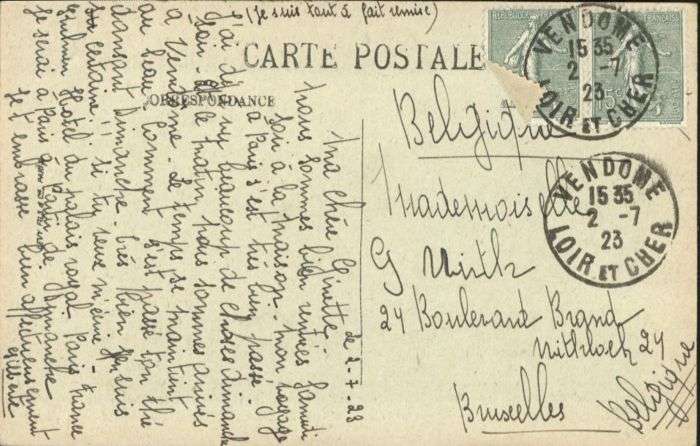 (Je suis tout à fait remise)
CARTE POSTALE
CORRESPONDANCE
le 2-7-23
Ma chère Ginette.
Nous sommes bien rentrées samedi
soir à la maison. Mon voyage
à Paris s'est très bien passé
J'ai du y beaucoup de choses dimanche
soir et le matin, nous sommes arrivés
à Vendôme. Le temps se maintient
au beau. Comment s'est passé ton thé
dansant dimanche. Très bien j'en suis
certaine. Si tu veux m'écrire
Hôtel du palais royal Paris France
Je serai à Paris à partir de dimanche
Je t'embrasse bien affectueusement
Gilberte
RÉPUBLIQUE FRANÇAISE
VENDOME
15 35
2 -7
23
LOIR ET CHER
VENDOME
15 35
2 -7
23
LOIR ET CHER
Belgique
Mademoiselle
G Wirtz
24 Boulevard Brand
Withlock 24
Bruxelles
Belgique